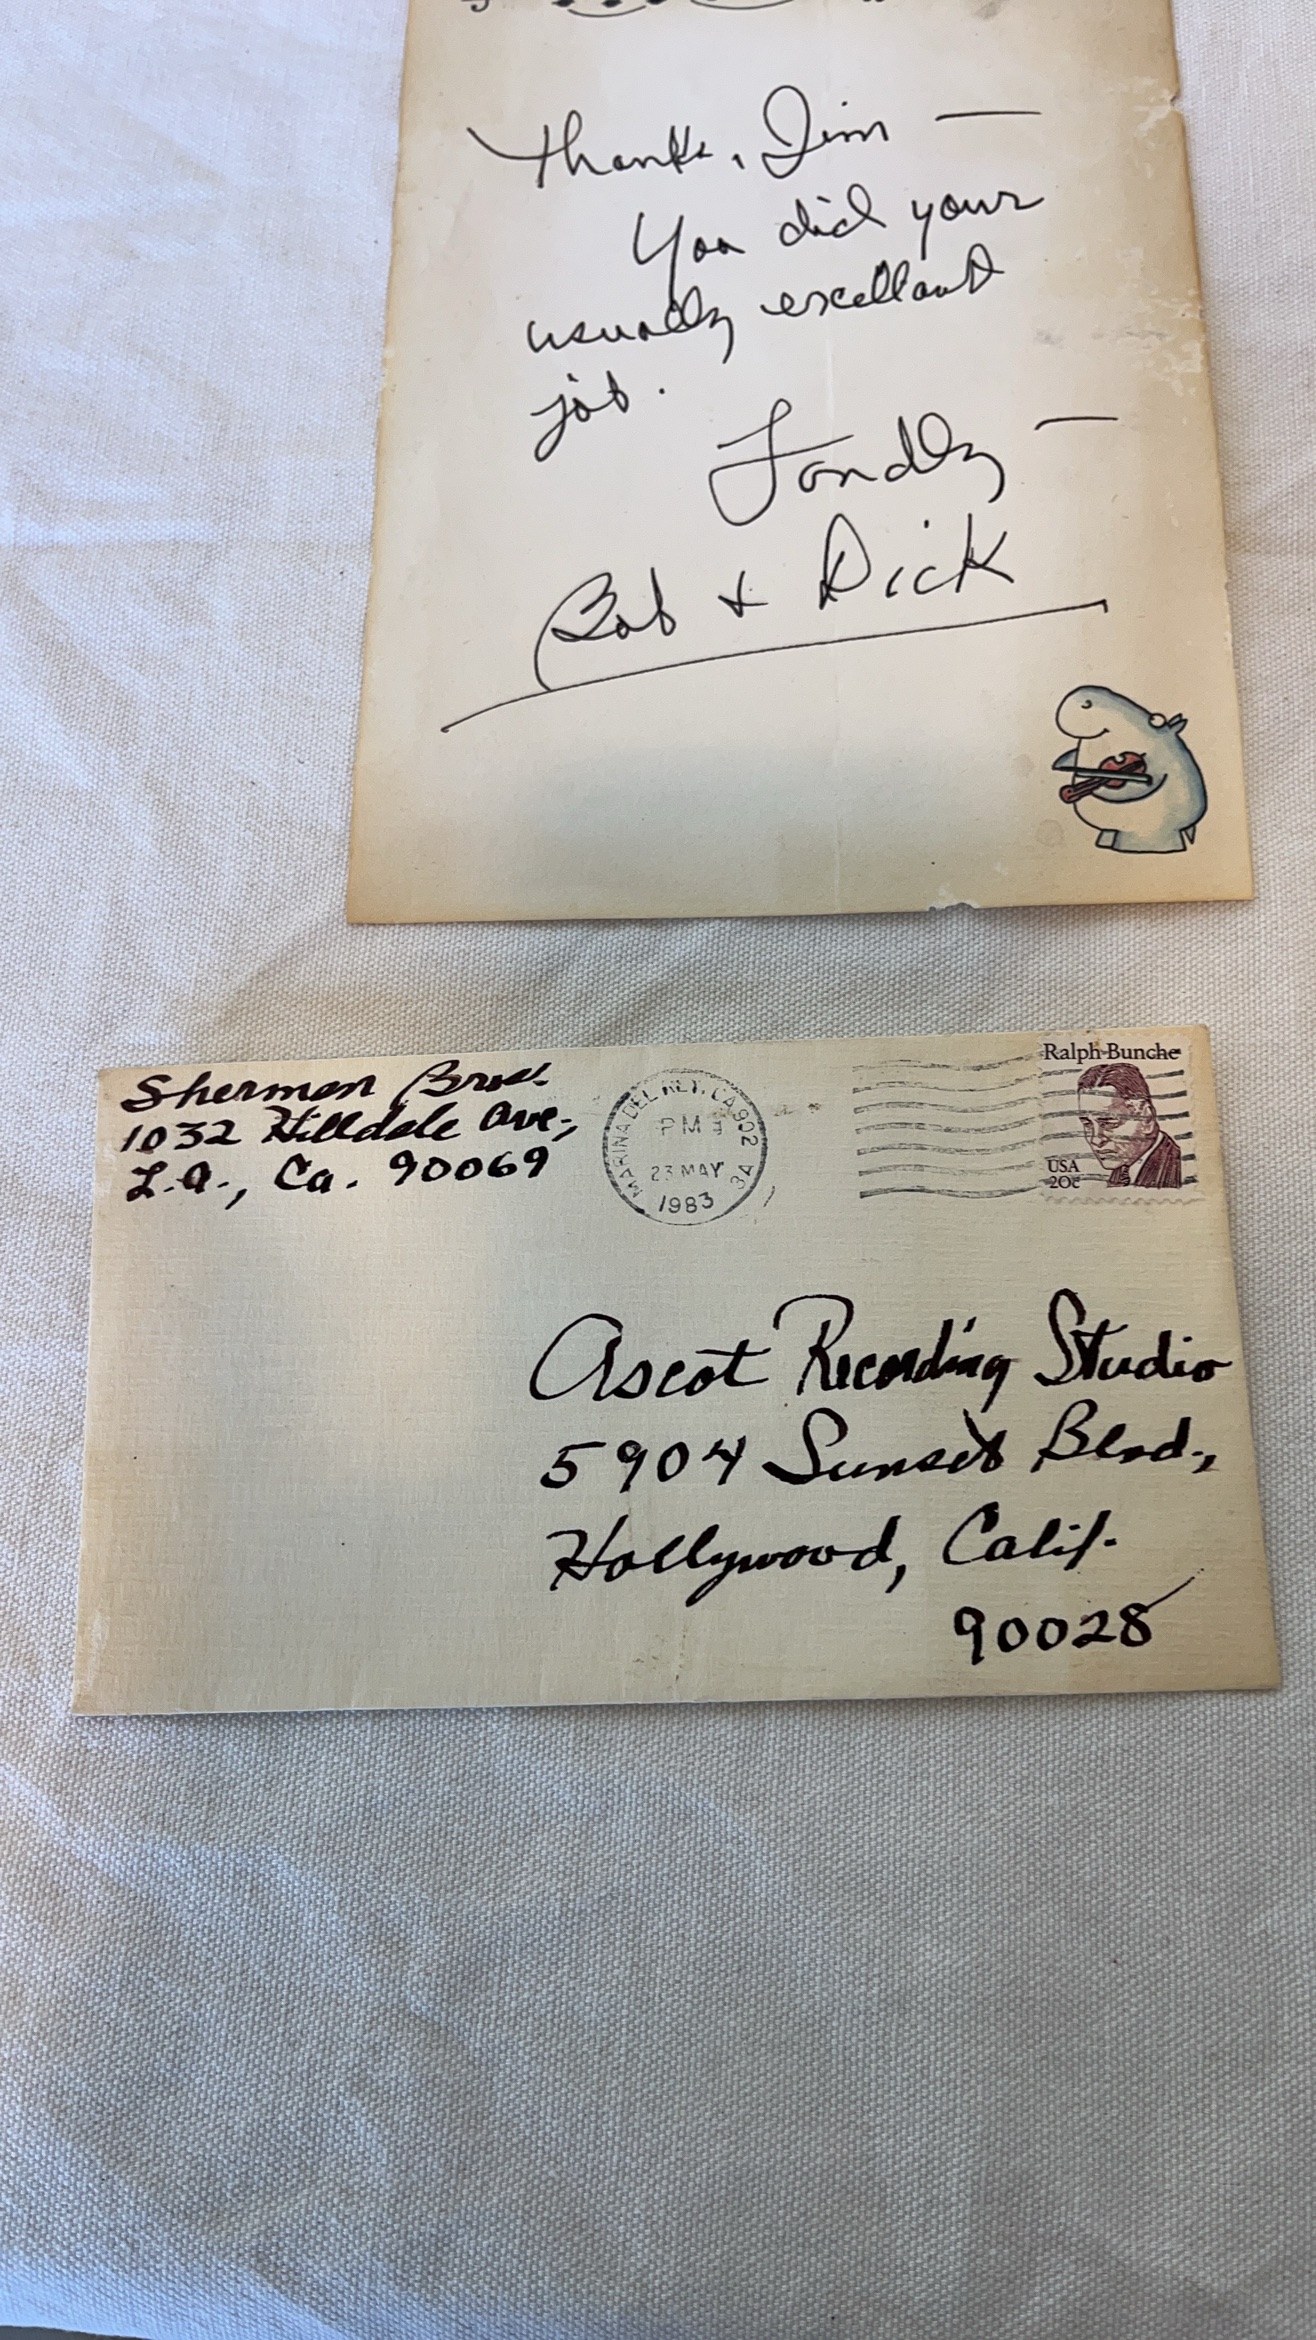 Thanks, Jim —
You did your
usually excellant
job.
Fondly —
Bob + Dick
Sherman Bros.
1032 Hilldale Ave.,
L.A., Ca. 90069
MARINA DEL REY, CA 902
PM
23 MAY
1983
Ralph Bunche
USA
20c
Ascot Recording Studio
5904 Sunset Blvd.,
Hollywood, Calif.
90028